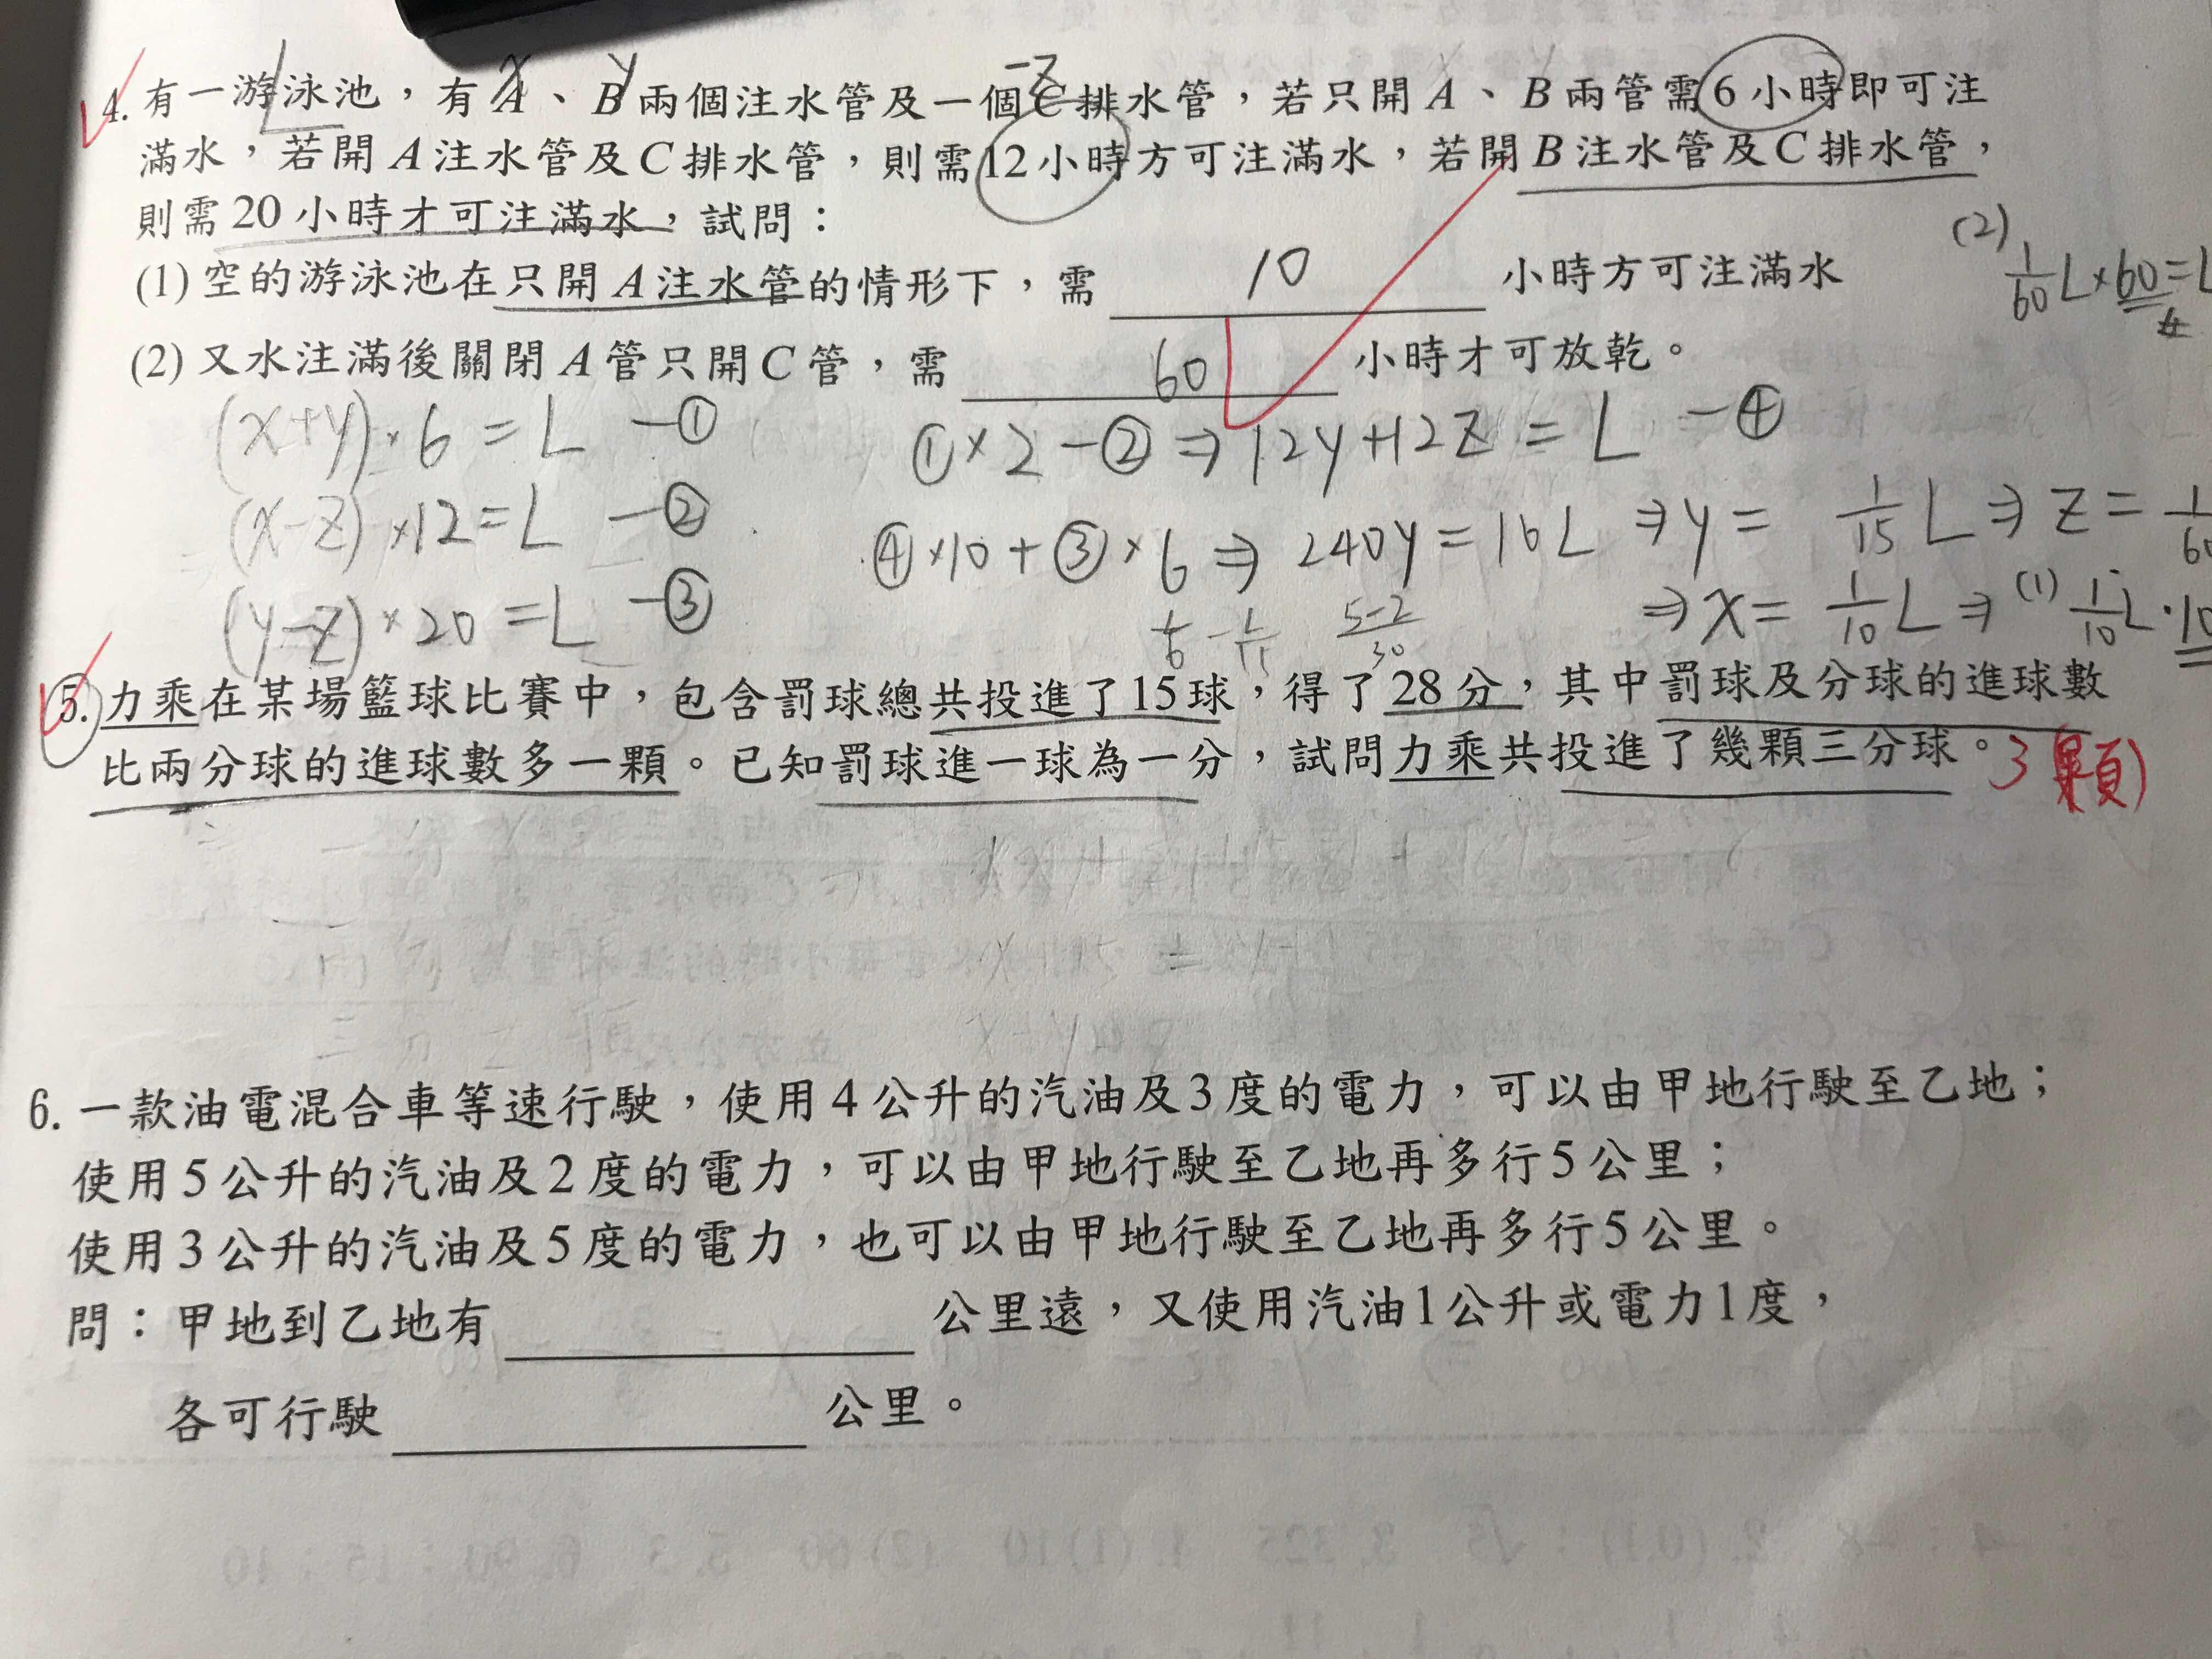 4. 有一游泳池，有A、B兩個注水管及一個C排水管，若只開A、B兩管需6小時即可注
滿水，若開A注水管及C排水管，則需12小時方可注滿水，若開B注水管及C排水管，
則需20小時才可注滿水，試問：
(1) 空的游泳池在只開A注水管的情形下，需 10 小時方可注滿水
(2) 又水注滿後關閉A管只開C管，需 60 小時才可放乾。
L
x
y
-z
(2)
1/60 L×60=L
(x+y)×6=L -①
(x-z)×12=L -②
(y-z)×20=L -③
①×2-②⇒12y+12z=L -④
④×10+③×6⇒240y=16L⇒y=1/15 L⇒z=1/60
⇒x=1/10 L⇒(1) 1/10 L·10
5-2/30
5. 力乘在某場籃球比賽中，包含罰球總共投進了15球，得了28分，其中罰球及分球的進球數
比兩分球的進球數多一顆。已知罰球進一球為一分，試問力乘共投進了幾顆三分球。3(顆)
6. 一款油電混合車等速行駛，使用4公升的汽油及3度的電力，可以由甲地行駛至乙地；
使用5公升的汽油及2度的電力，可以由甲地行駛至乙地再多行5公里；
使用3公升的汽油及5度的電力，也可以由甲地行駛至乙地再多行5公里。
問：甲地到乙地有 公里遠，又使用汽油1公升或電力1度，
各可行駛 公里。